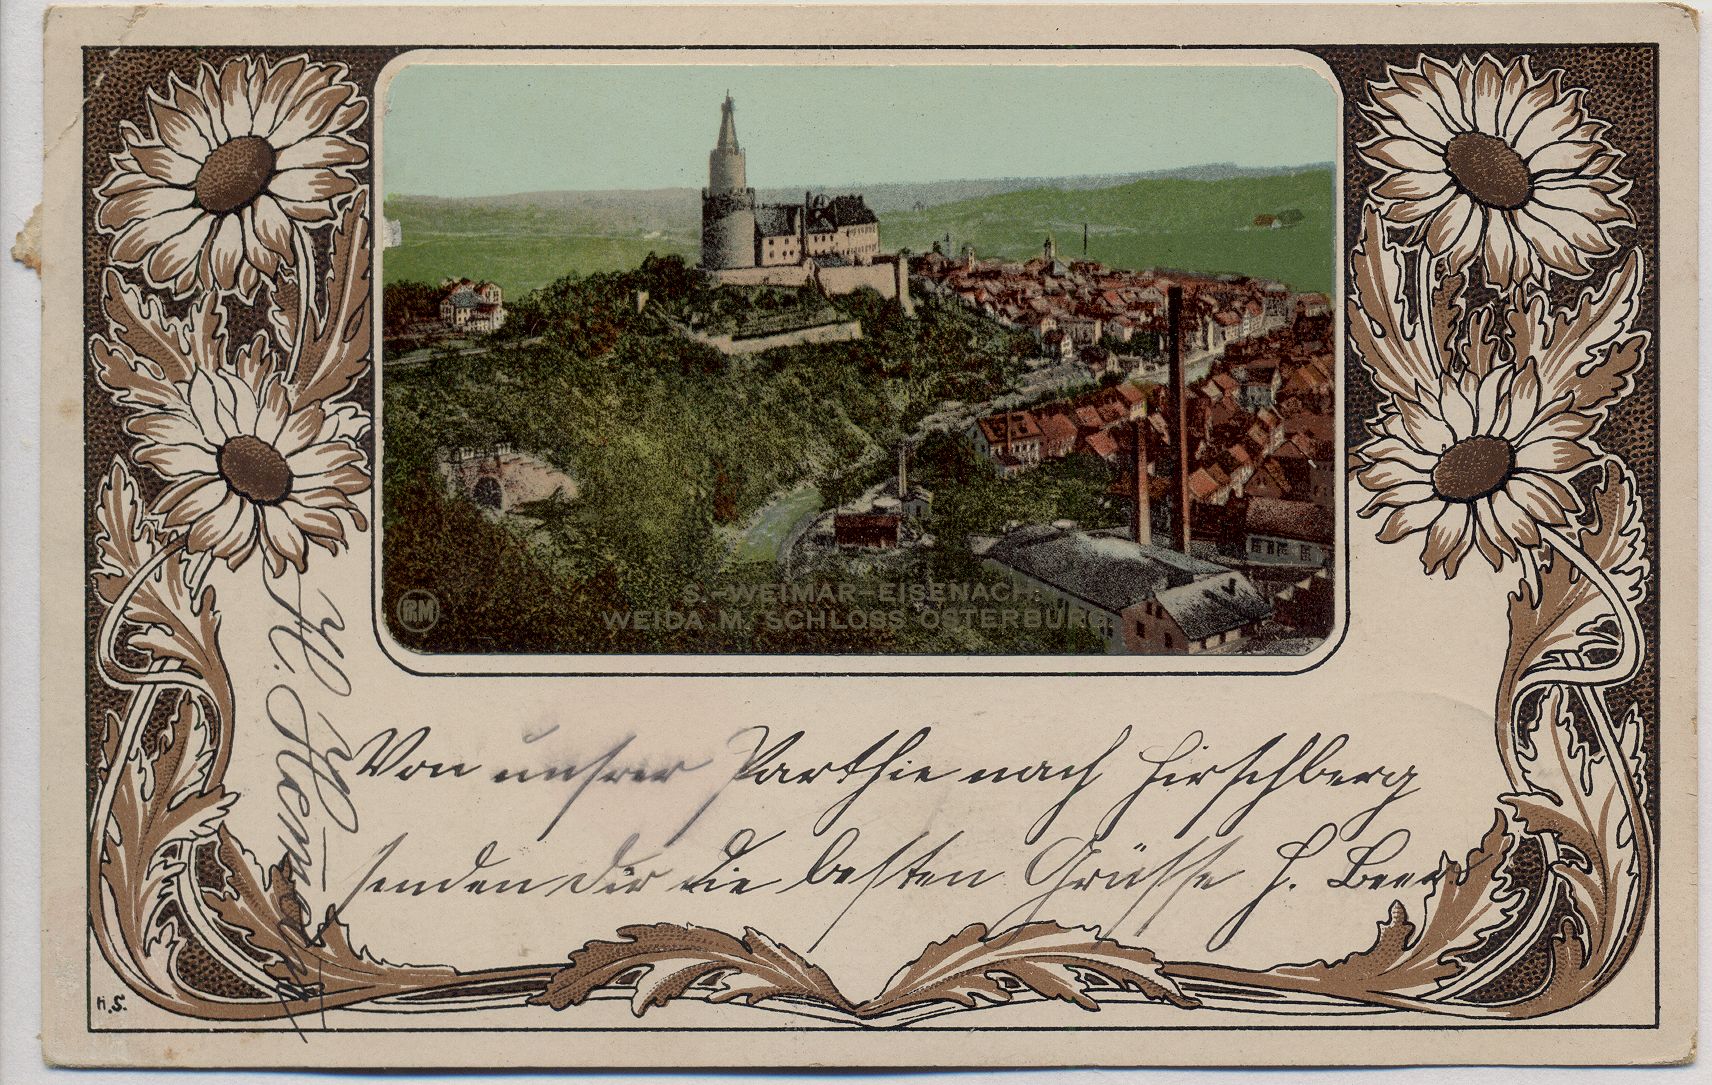 RM
S.-WEIMAR-EISENACH.
WEIDA M. SCHLOSS OSTERBURG.
Von unsrer Parthie nach Hirschberg
senden dir die besten Grüsse H.
H.
H.S.